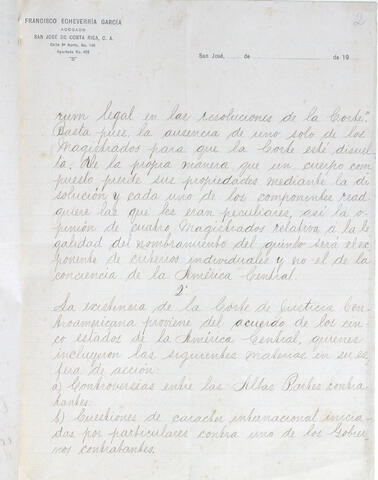 2
FRANCISCO ECHEVERRÍA GARCÍA
ABOGADO
SAN JOSÉ DE COSTA RICA, C. A.
San José, de de 19
rum legal en las resoluciones de la Corte".
Basta pues, la ausencia de uno solo de los
Magistrados para que la Corte esté disuel-
ta. De la propia manera que un cuerpo com
puesto pierde sus propiedades mediante la di
solución y cada uno de los componentes read
quiere las que les eran peculiares, así la o-
pinión de cuatro Magistrados relativa a la le
galidad del nombramiento del quinto será el ex
ponente de criterios individuales y no el de la
conciencia de la América Central.
2º
La existencia de la Corte de Justicia Cen-
troamericana proviene del acuerdo de los cin-
co estados de la América Central, quienes
incluyeron las siguientes materias en su es-
fera de acción:
a) Controversias entre las Altas Partes contra-
tantes.
b) Cuestiones de caracter internacional inicia-
das por particulares contra uno de los Gobier
nos contratantes.